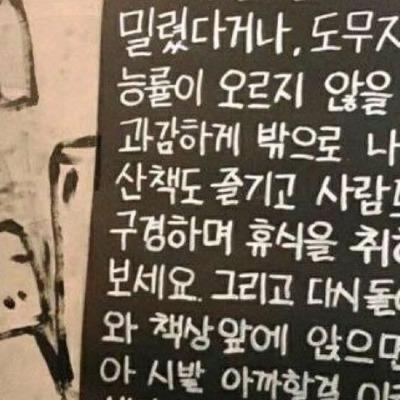 밀렸다거나, 도무지
능률이 오르지 않을
과감하게 밖으로 나
산책도 즐기고 사람
구경하며 휴식을 취
보세요. 그리고 다시
와 책상앞에 앉으면
아 시발 아까할걸